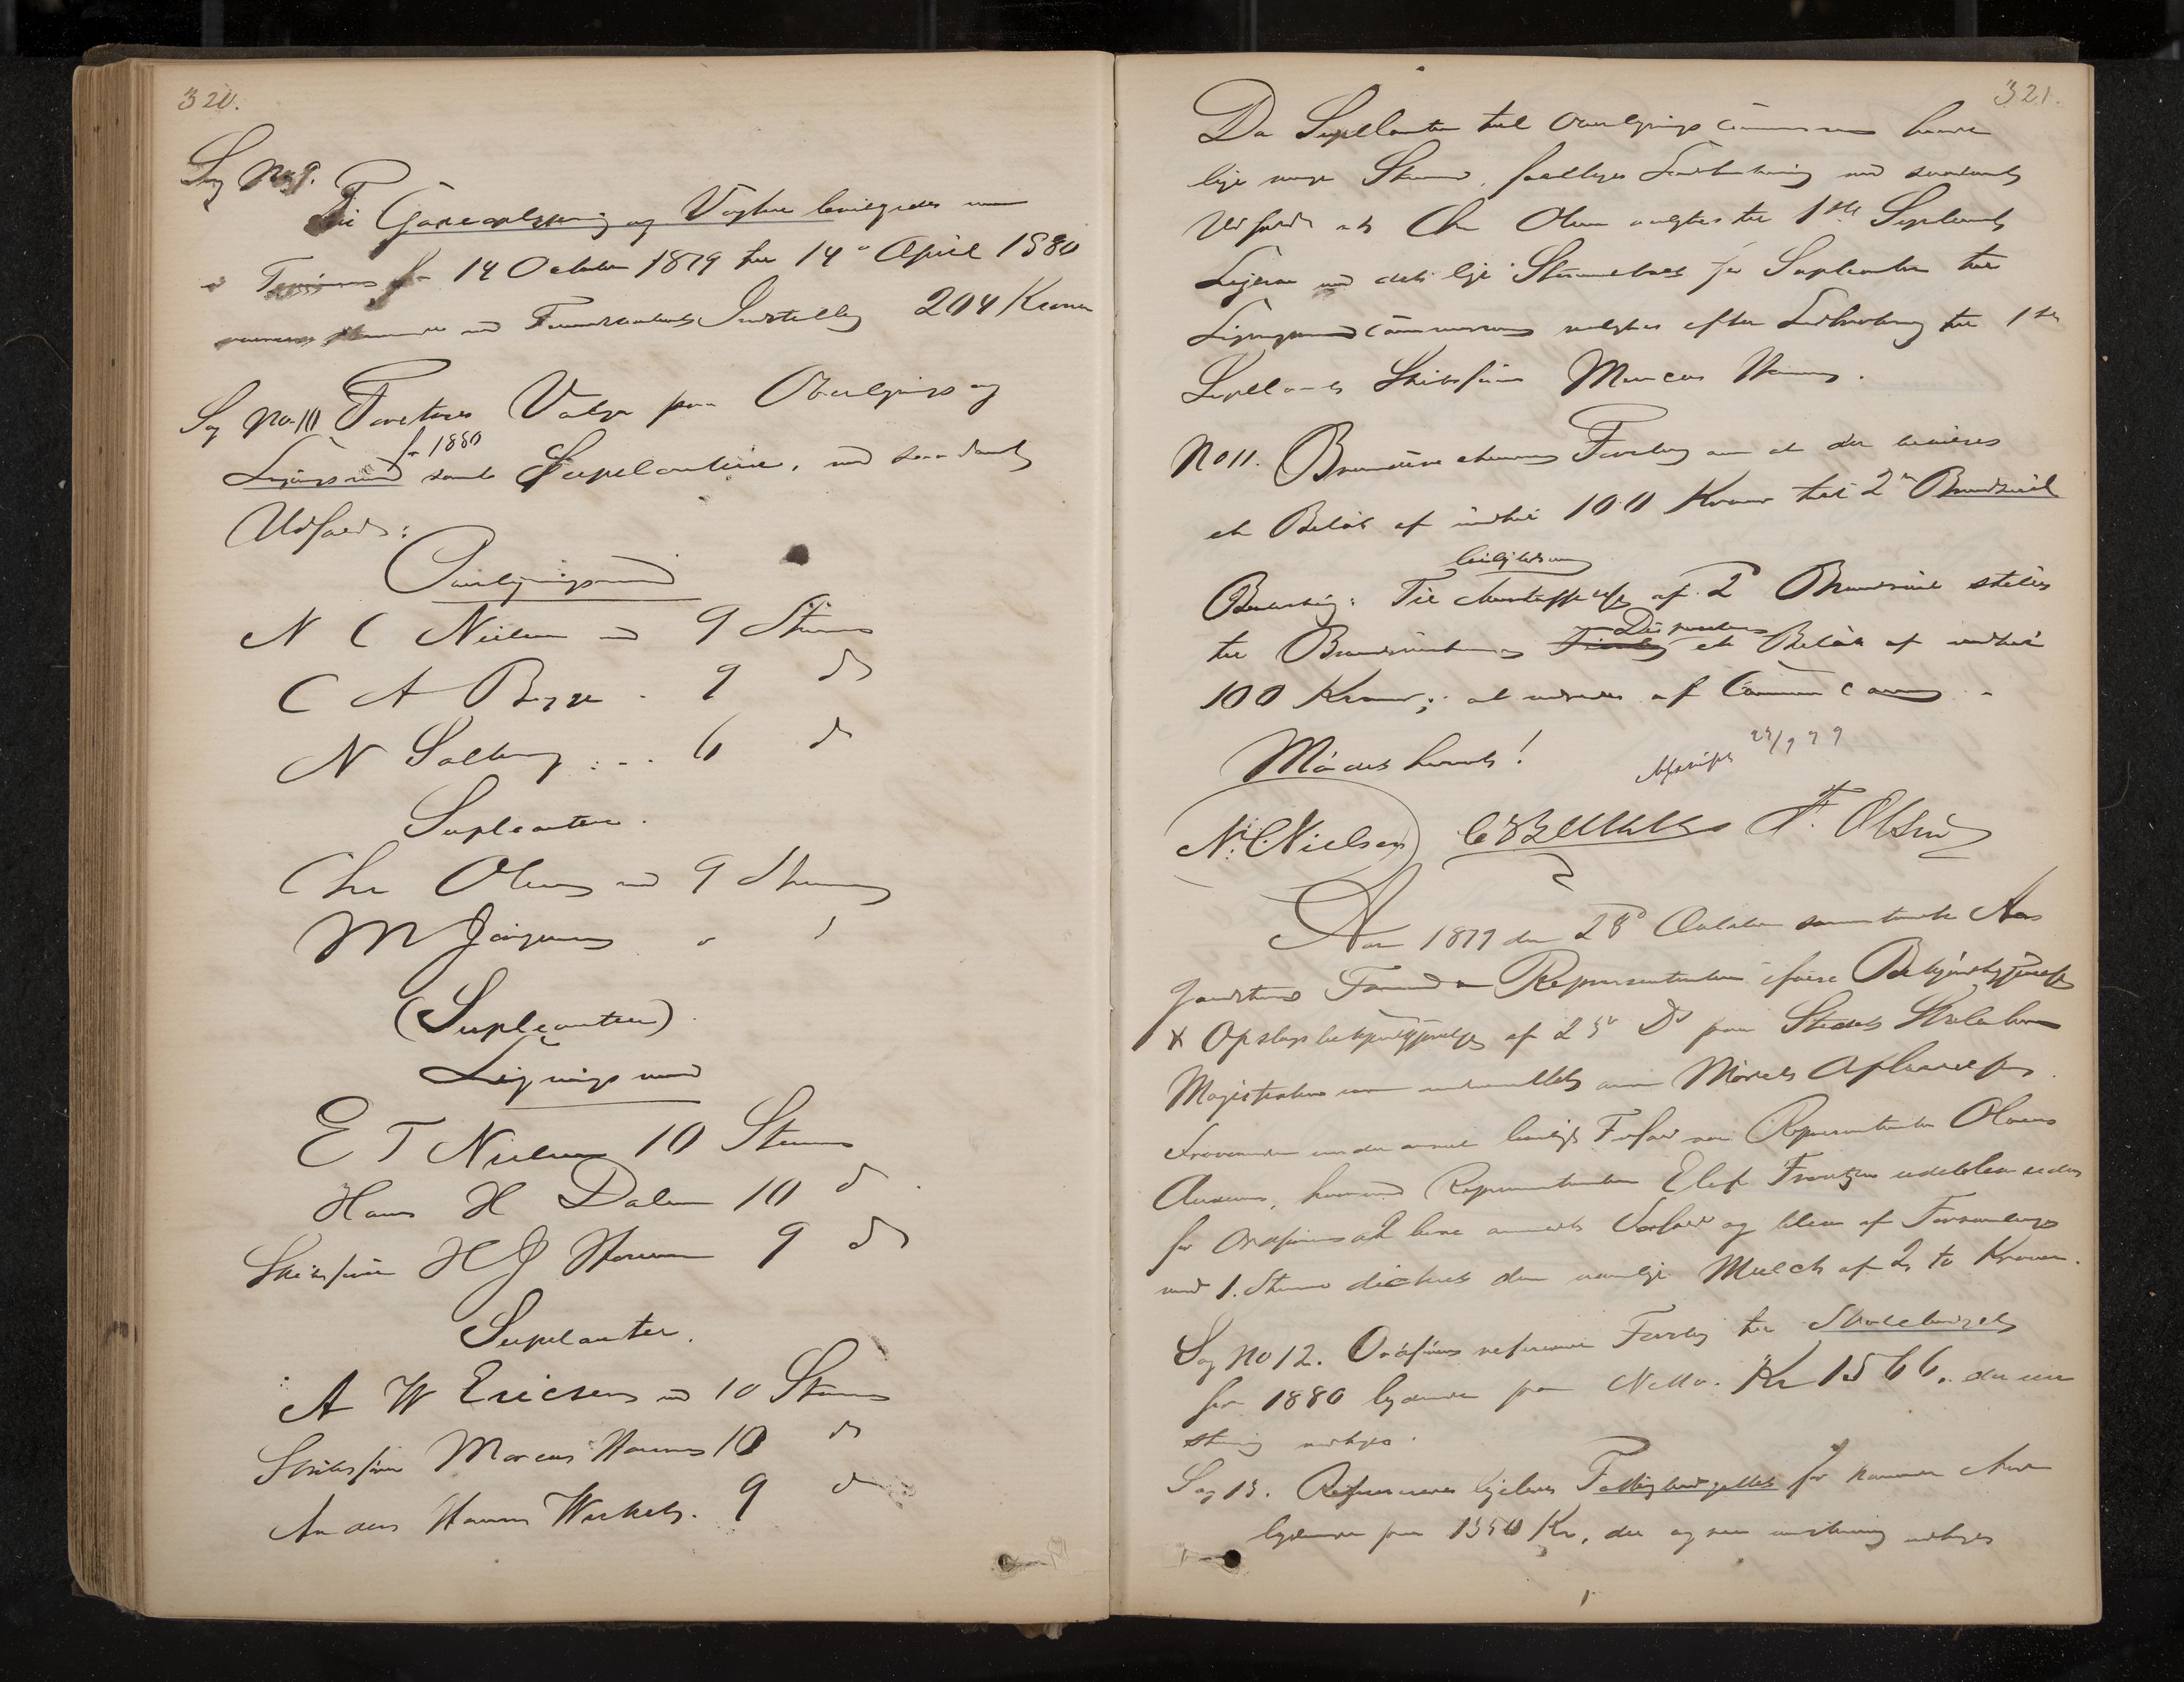 320.
Sag No 9.
Til Gadeoplysning og Vægtere bevilgedes
Terminen fra 14 October 1879 til 14de April 1880
Formandskabets Indstilling 204 Kroner
Sag No 10 Foretoges Valg paa Overlignings og
for 1880
Ligningsmænd samt Supleanter, med saadant
Udfald:
Overligningsmænd
N C Nielsen med 9 Stemmer
C A Bugge - 9 do
N Salberg . - - 6 do
Supleanter.
Chr Olsen med 9 Stemmer
M Jörgensen
(Supleanter)
Ligningsmænd
E T Nielsen 10 Stemmer
Hans H Dalen 10 do
Skibsfører H J Hansen 9 do
Supleanter.
A W Ericsen med 10 Stemmer
Skibsfører Marcus Hannes 10 do
Anders Hansen 9 do
321.
Da Supleanter til Overlignings Commissionen havde
lige mange Stemmer, foretoges Lodtrækning med saadant
Udfald at Chr Olsen valgtes til 1ste Supleant
Ligesaa med det lige Stemmetal for Supleanter til
Ligningscommissionen valgtes efter Lodtrækning til 1ste
Supleant Skibsfører Marcus Hannes.
No 11. Forslag om at der
et Beløb af indtil 100 Kroner til 2 Brandseil
bevilget som
Beslutning: Til Anskaffelse af 2 Brandseile stilles
Disposition
til et Beløb af indtil
100 Kroner; at udredes af Communecassen -
Mödet hævet!
Afskrift 24/9 79
N. C. Nielsen F. Olsen
Aar 1879 den 28de October samledes Aas
gaardstrands Formænd og Repræsentanter ifølge Bekjendtgjørelse
& Opslagsbekjendtgjørelse af 25de Ds paa Stedets Skolehus
Magistraten var underrettet om Mödets Afholdelse.
Fraværende under anmeldt lovligt Forfald var Repræsentanten Olaus
Andersen, hvorimod Repræsentanten Elef Frantzen udeblev uden
for Ordføreren at have anmeldt Forfald og blev af Forsamlingen
med 1. Stemme dicteret den vanlige Mulct af 2, to Kroner.
Sag No 12. Ordføreren refererer Forslag til Skolebudget
for 1880 lydende paa Netto. Kr 1566. der een
stemmig vedtoges.
Sag 13. Refereredes ligeledes Fattigbudgettet for kommende Aar
lydende paa 1350 Kr, der og saa eenstemmig vedtoges